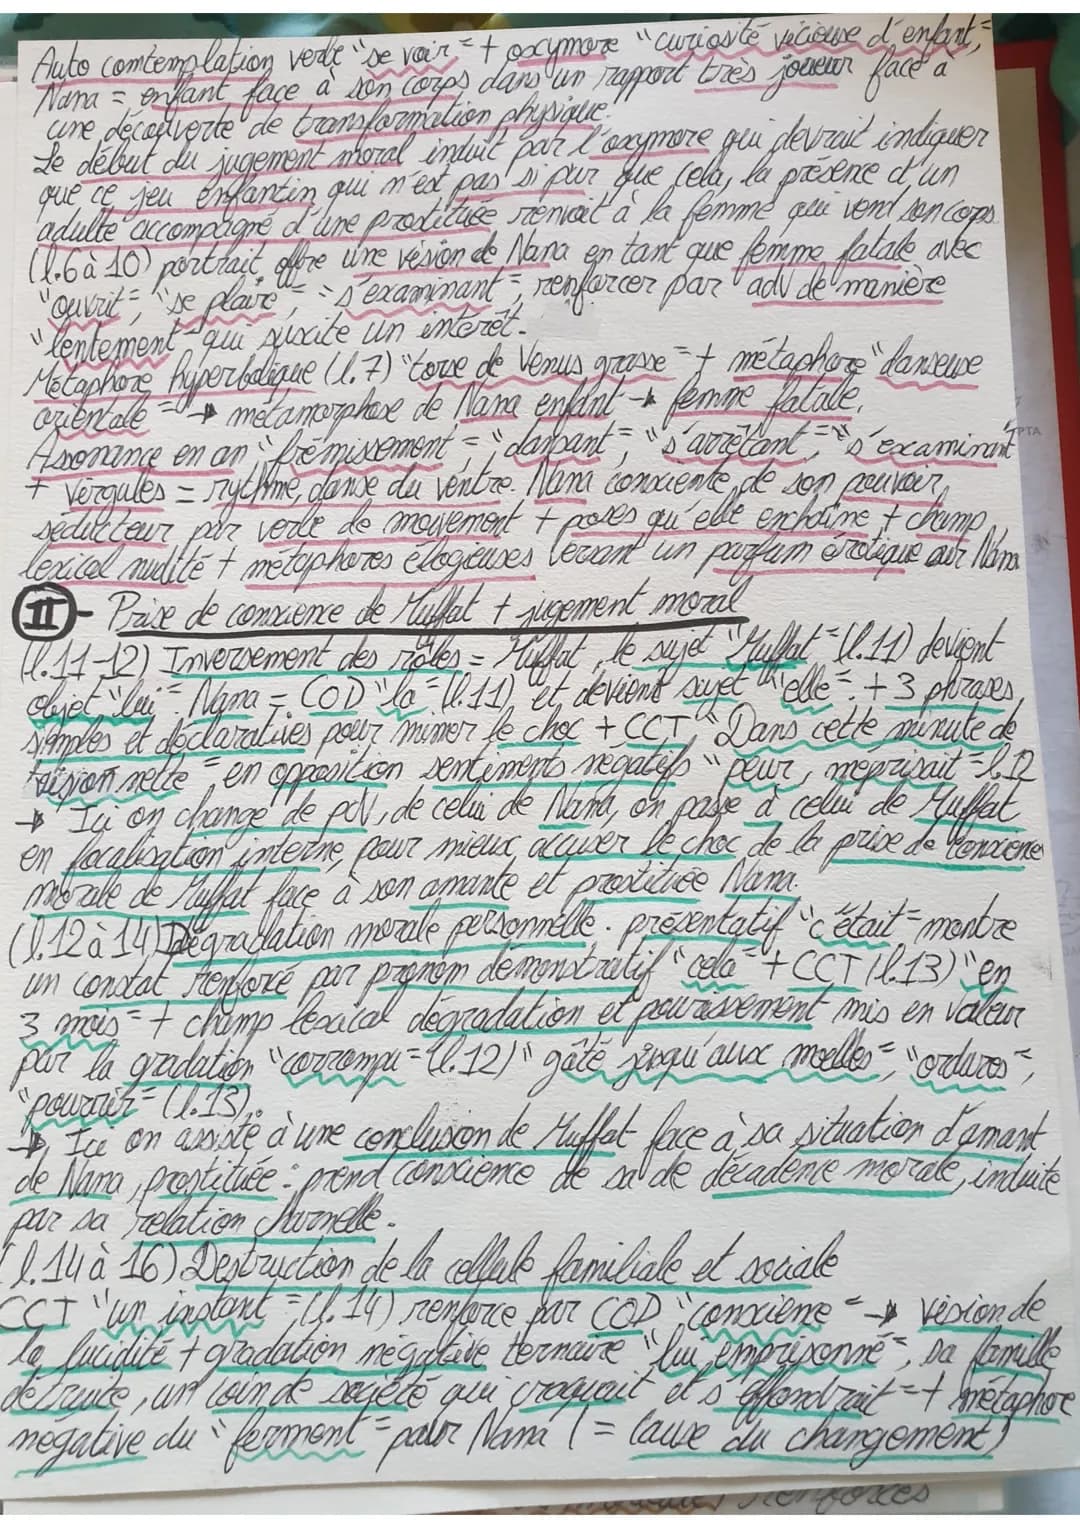 Auto comtemplation verbe "se voir" + oxymore "curiosité vicieuse d'enfant"
Nana = enfant face à son corps dans un rapport très joueur face à
une découverte de transformation physique.
Le début du jugement moral induit par l'oxymore qui devrait indiquer
que ce jeu enfantin qui n'est pas si pur que cela, la présence d'un
adulte accompagné d'une prostituée renvoit à la femme qui vend son corps.
(l.6 à 10) portrait offre une vision de Nana en tant que femme fatale avec
"ouvrit", "se plaire", "s'examinant", renforcer par adv de manière
"lentement" qui suscite un interêt.
Métaphore hyperbolique (l.7) "torse de Venus grasse" + métaphore "danseuse
orientale" → métamorphose de Nana enfant → femme fatale.
Assonance en an "frémissement", "dansant", "s'arrêtant", "s'examinant"
+ virgules = rythme, danse du ventre. Nana consciente de son pouvoir
séducteur par verbe de mouvement + poses qu'elle enchaîne + champ
lexical nudité + métaphores élogieuses versant un parfum érotique sur Nana
II - Prise de conscience de Muffat + jugement moral
(l.11-12) Inversement des rôles = Muffat, le sujet "Muffat" (l.11) devient
objet "lui". Nana = COD "la" (l.11) et devient sujet "elle". + 3 phrases
simples et déclaratives pour mimer le choc + CCT "Dans cette minute de
vision nette" en opposition sentiments négatifs "peur, meprisait" l.12
→ Ici on change de pdV, de celui de Nana, on passe à celui de Muffat
en focalisation interne, pour mieux accuser le choc de la prise de conscience
morale de Muffat face à son amante et prostituée Nana.
(l.12 à 14) Dégradation morale personnelle. présentatif "c'était" montre
un constat renforcé par pronom démonstratif "cela" + CCT (l.13) "en
3 mois" + champ lexical dégradation et pourrissement mis en valeur
par la gradation "corrompu" (l.12) "gâté jusqu'aux moelles", "ordures",
"pourrir" (l.13).
→ Ici on assiste à une conclusion de Muffat face à sa situation d'amant
de Nana, prostituée : prend conscience de sa de décadence morale, induite
par sa relation charnelle.
(l.14 à 16) Destruction de la cellule familiale et sociale
CCT "un instant" (l.14) renforce par COD "conscience" → vision de
la lucidité + gradation négative ternaire "lui emprisonné, sa famille
détruite, un coin de société qui craquait et s'effondrait" + métaphore
négative du "ferment" pour Nana (= cause du changement)
renforcés